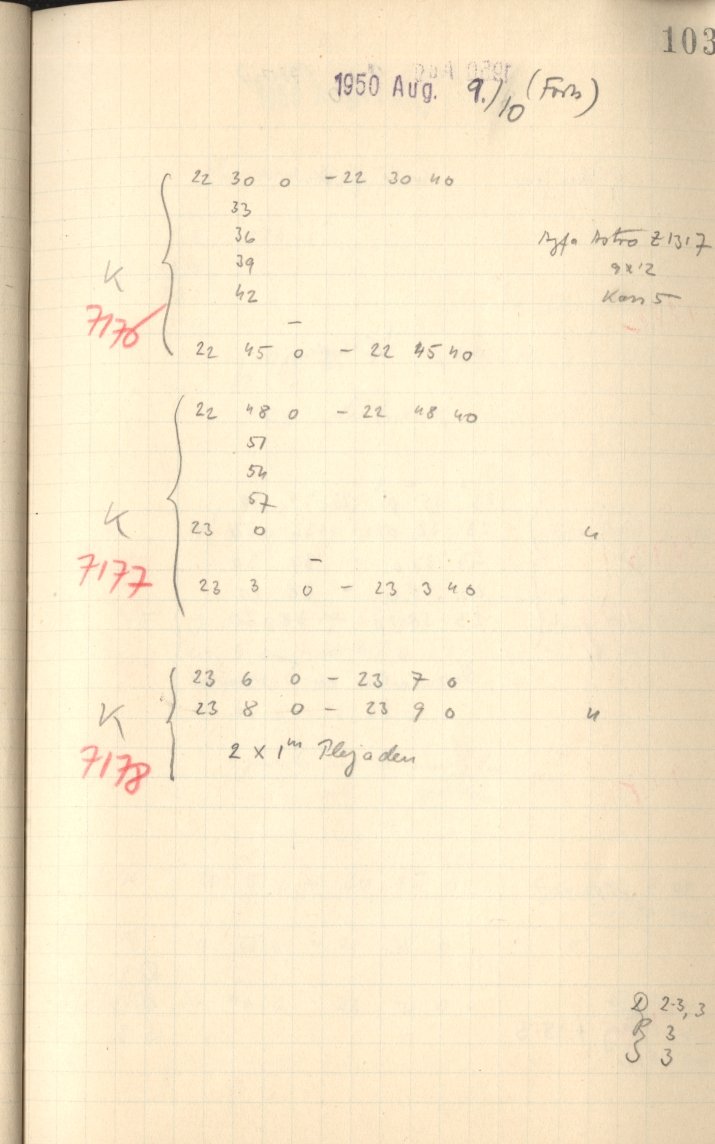 103
1950 Aug. 9./10 (Forts)
22 30 0 - 22 30 40
33
36 Agfa Astro Z 1317
39 9x12
K 42 Kass 5
7176
22 45 0 - 22 45 40
22 48 0 - 22 48 40
51
54
57
K 23 0 "
7177
23 3 0 - 23 3 40
23 6 0 - 23 7 0
K 23 8 0 - 23 9 0 "
7178 2 x 1m Plejaden
D 2-3, 3
R 3
S 3